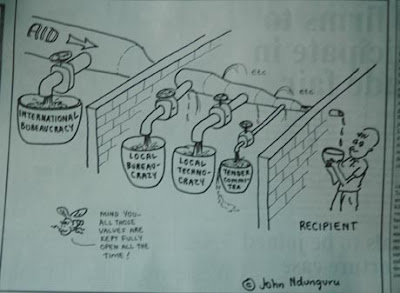 AID
INTERNATIONAL
BUREAUCRACY
etc
etc
LOCAL
BUREAU-
CRAZY
LOCAL
TECHNO-
CRAZY
TENDER
COMMIT-
TEA
MIND YOU-
ALL THOSE
VALVES ARE
KEPT FULLY
OPEN ALL THE
TIME!
RECIPIENT
© John Ndunguru